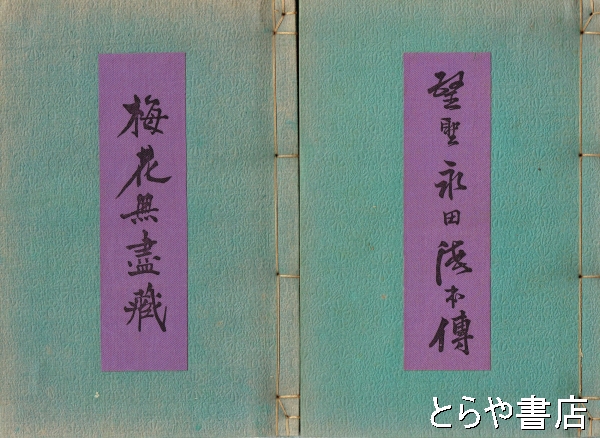 毉聖永田徳本傳
梅花無盡藏
とらや書店